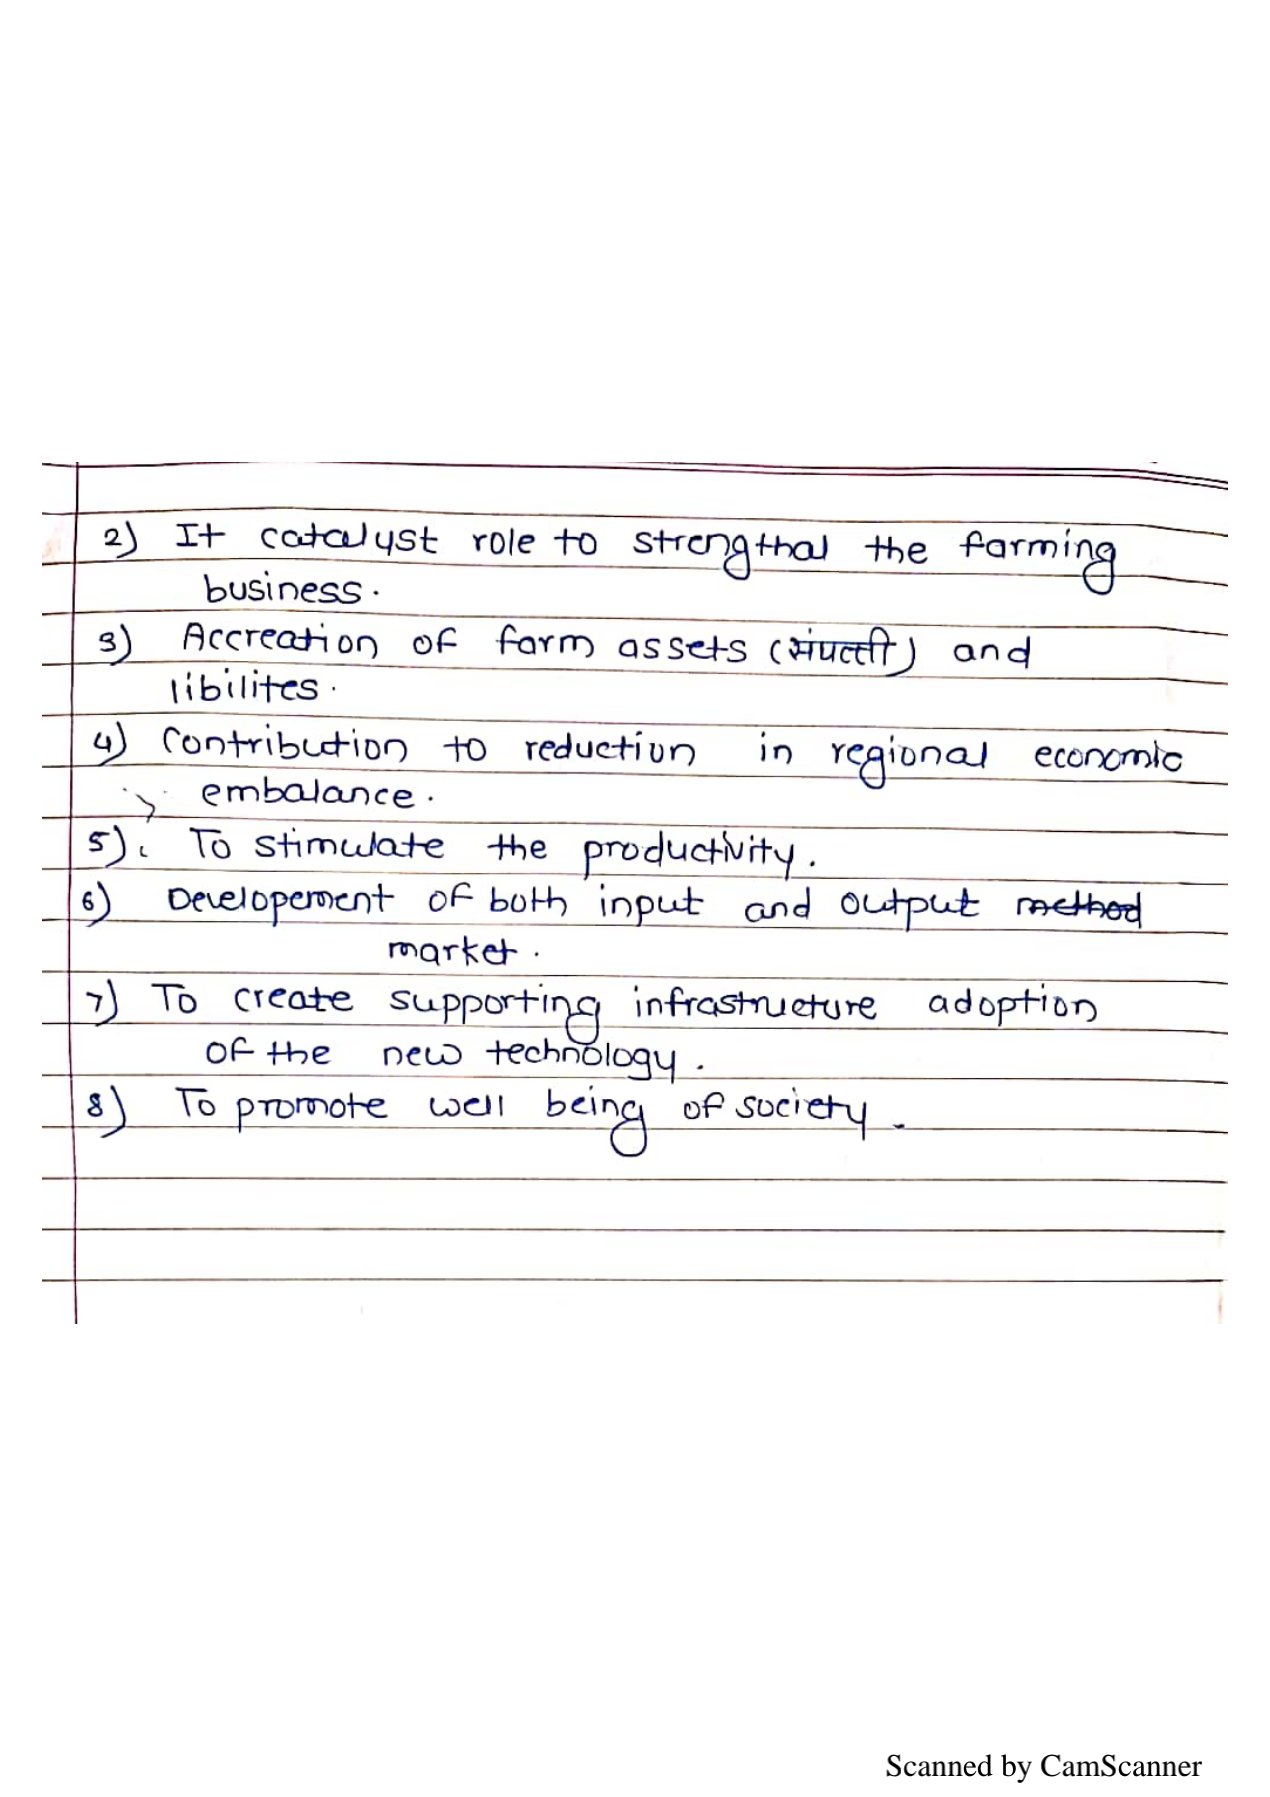 2) It catalyst role to strengthal the farming
business.
3) Accreation of farm assets (संपत्ती) and
libilites.
4) Contribution to reduction in regional economic
embalance.
5) To stimulate the productivity.
6) Developement of both input and output method
market.
7) To create supporting infrastructure adoption
of the new technology.
8) To promote well being of society.
Scanned by CamScanner